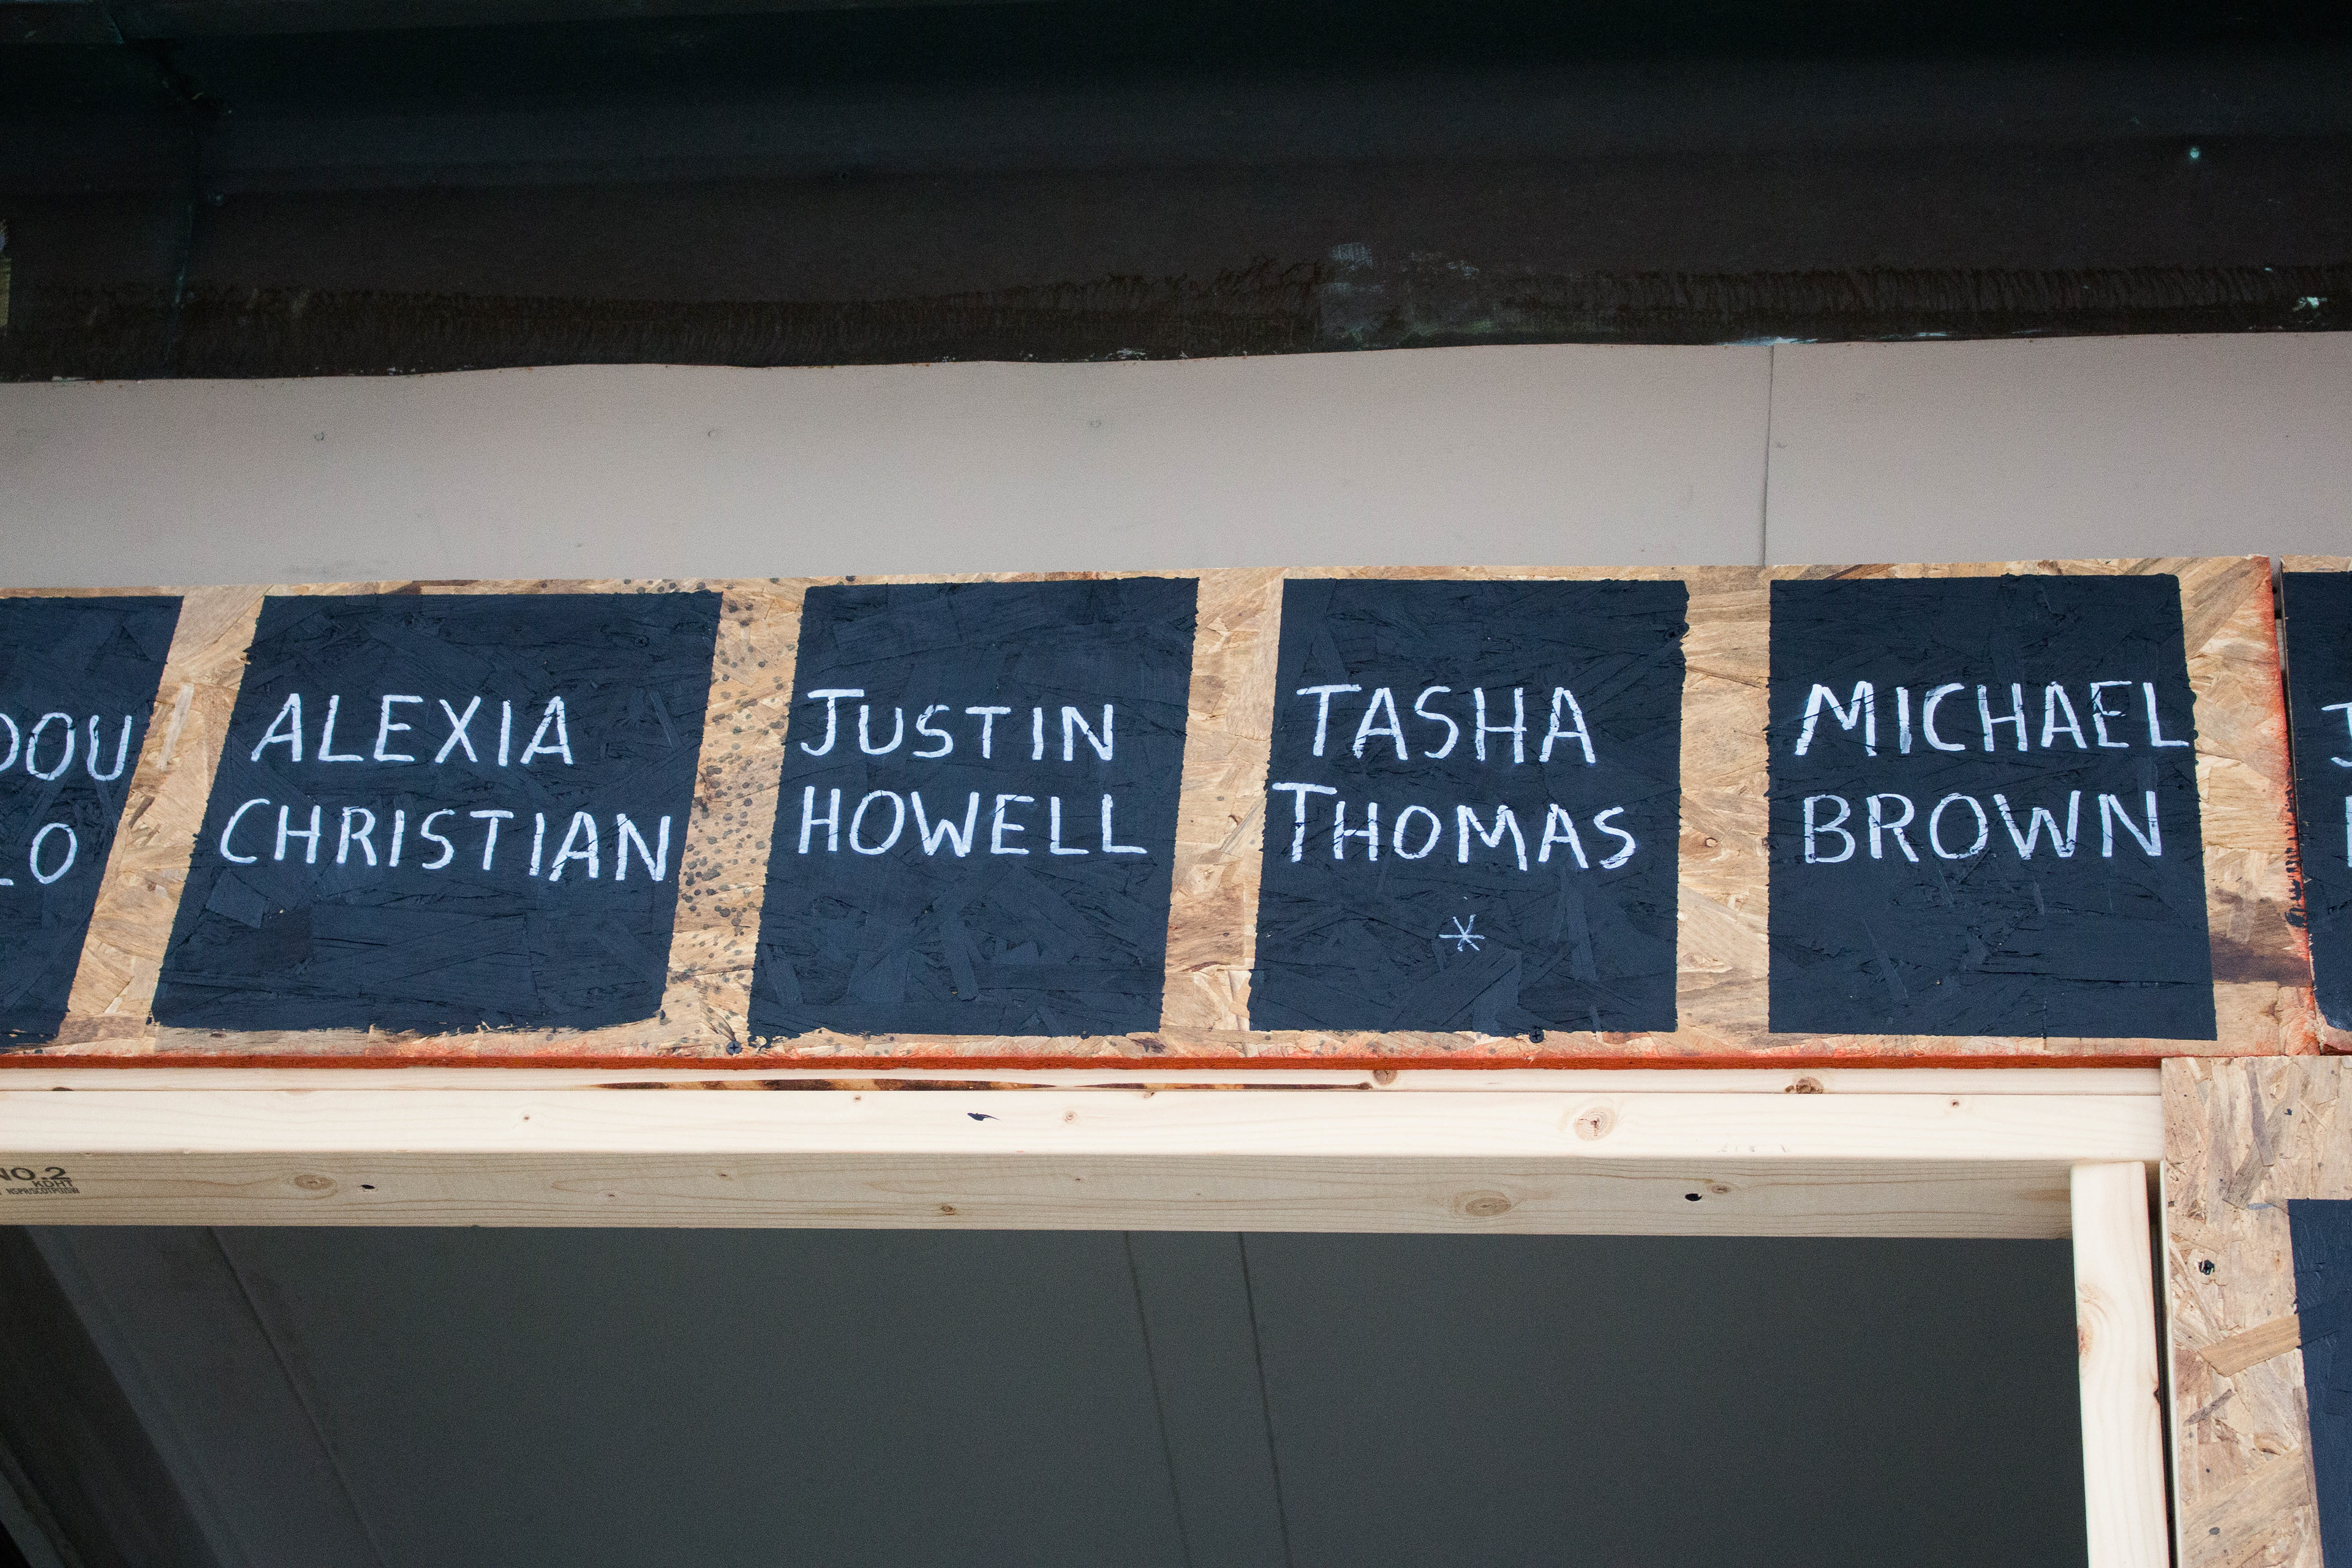 ALEXIA
CHRISTIAN
JUSTIN
HOWELL
TASHA
THOMAS
*
MICHAEL
BROWN
NO.2
KDHT